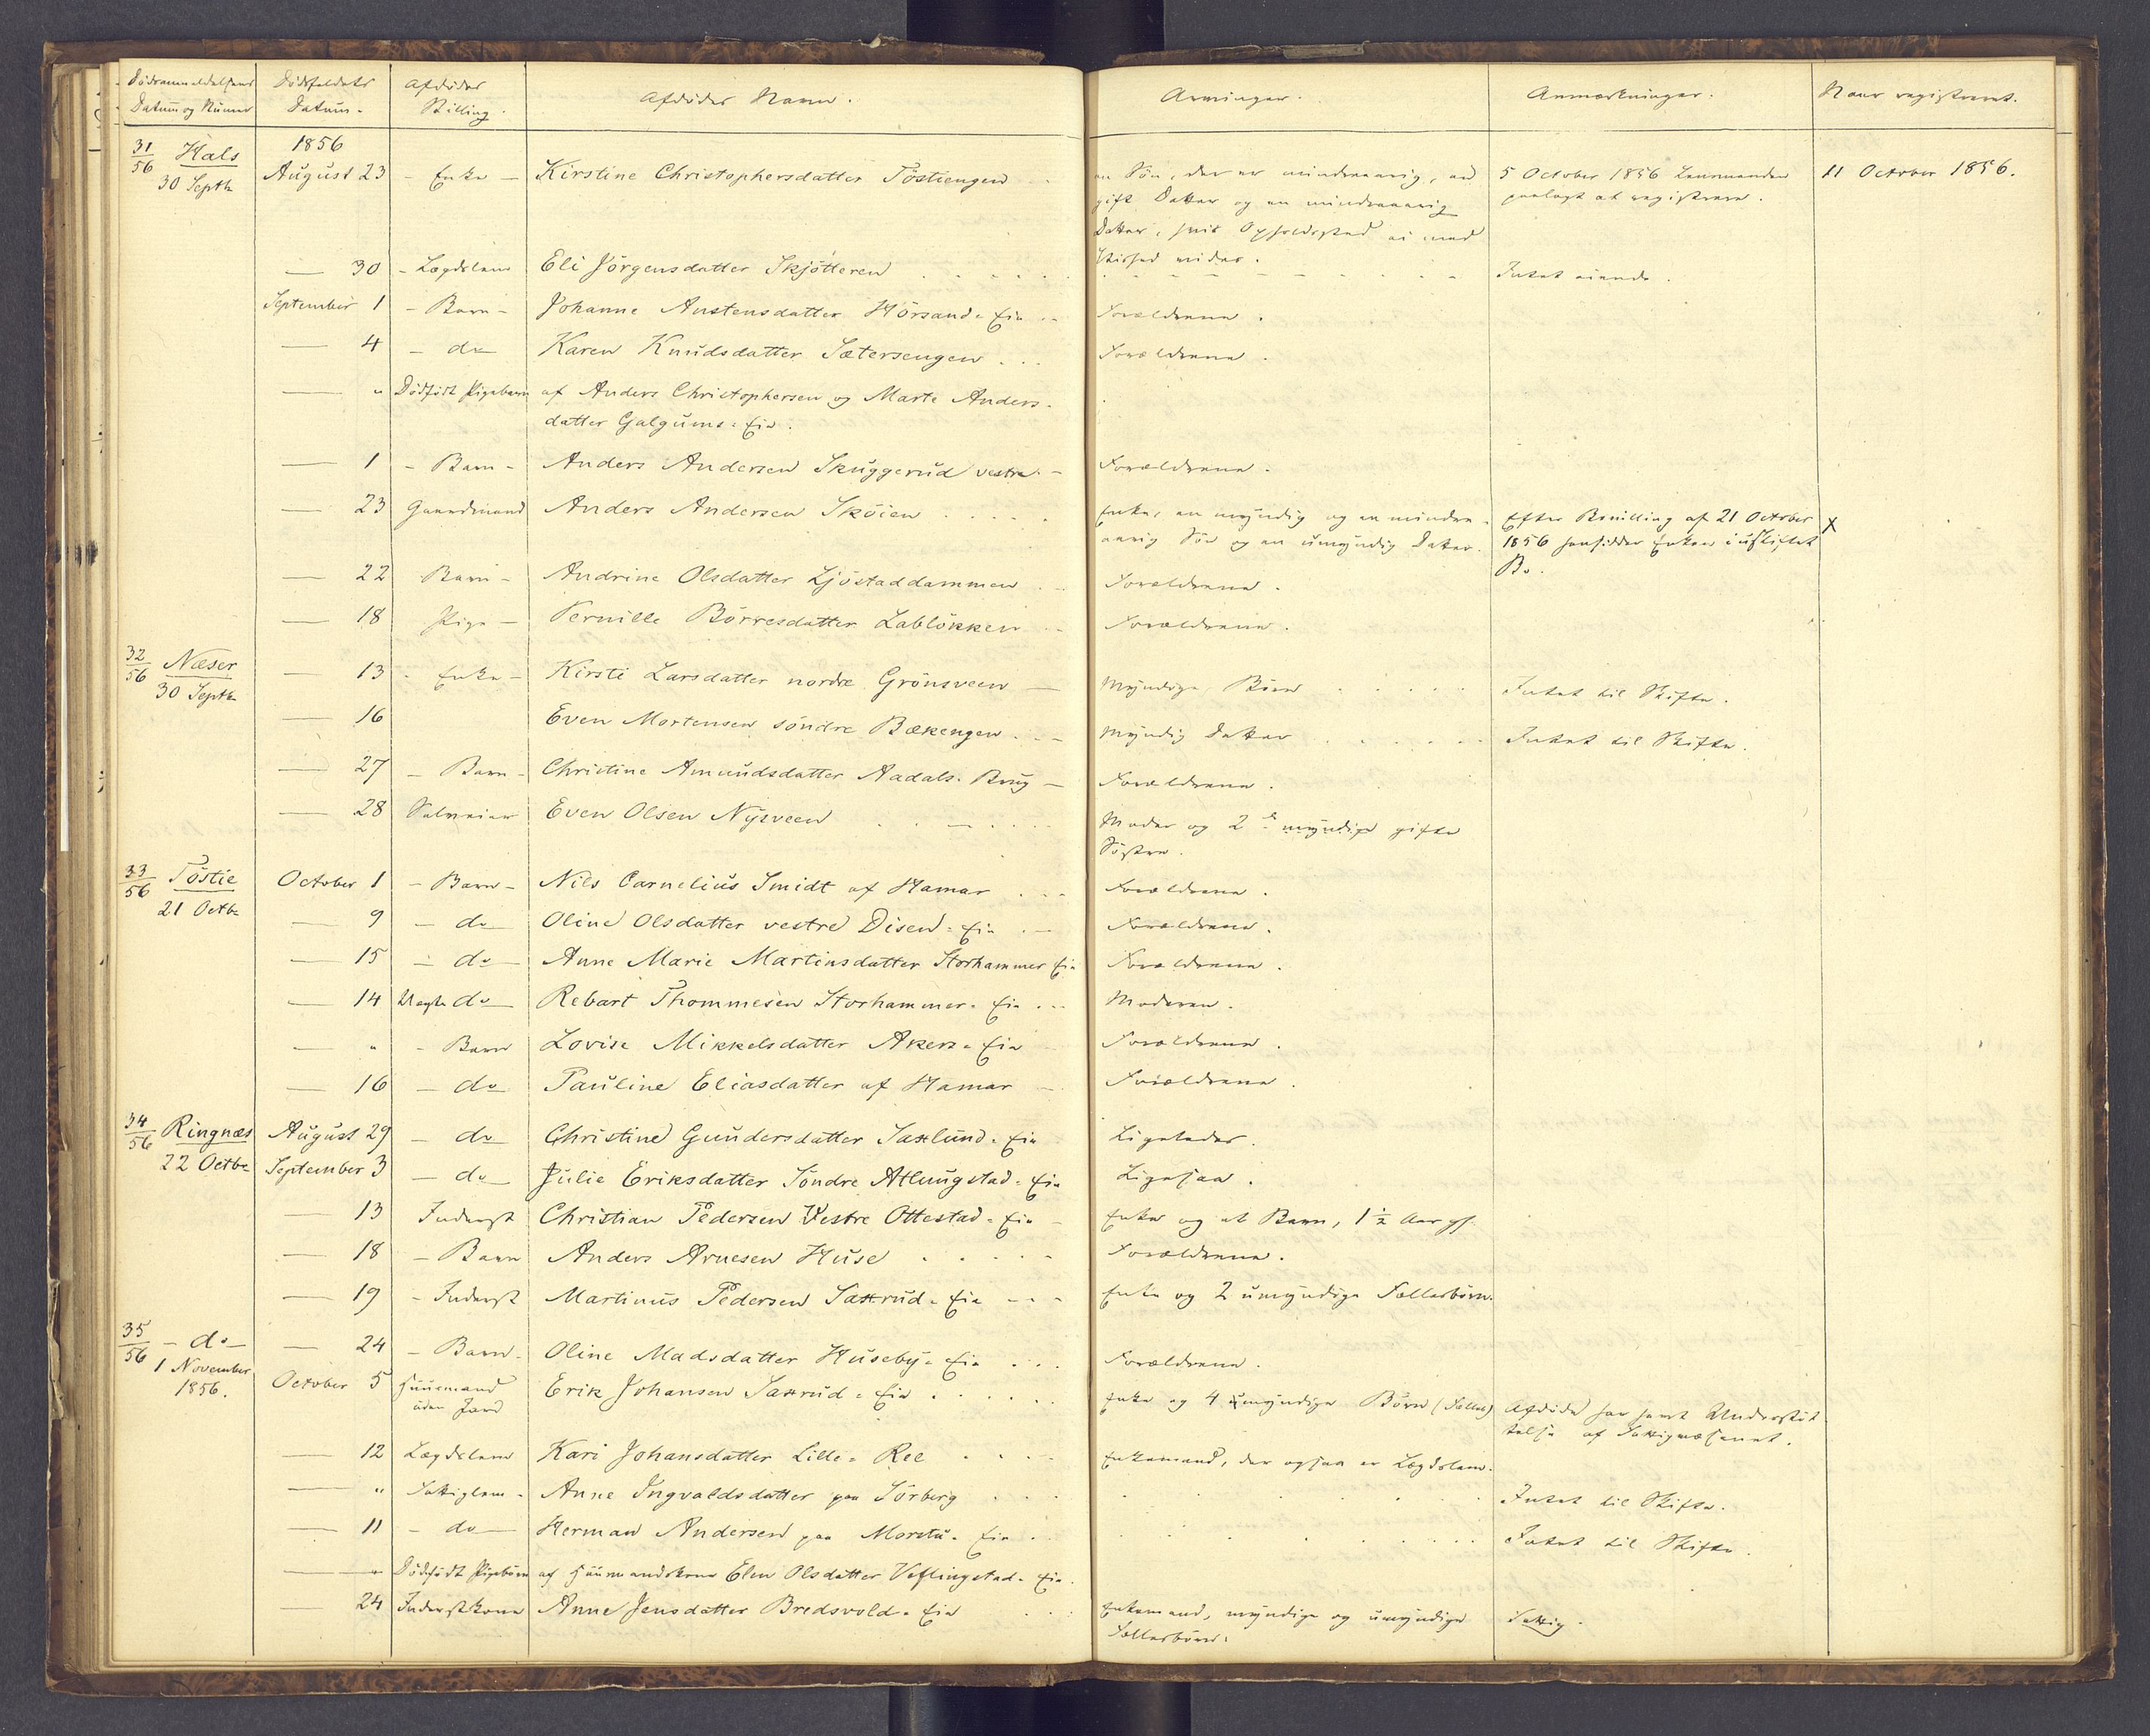 Dödsanmeldelsens Datum og Numer | Dödsfaldets Datum. | Afdödes Stilling. | Afdödes Navn. | Arvinger. | Anmærkninger. | Naar registreret.
31/56 Hals 30 Septb | 1856 August 23 | Enke | Kirstine Christophersdatter Töstiengen | en Sön, der er mindreaarig, en | 5 October 1856 Lensmanden | 11 October 1856.
gift Datter og en mindreaarig | paalagt at registrere.
Datter, hvis Opholdsted ei med
Vished vides.
30 | Lægdslem | Eli Jörgensdatter Skjötteren | Intet eiende.
September 1 | Barn | Johanne Austensdatter Hörsand-Eie | Forældrene.
4 | do | Karen Knudsdatter Sætersengen | Forældrene.
" | Dödfödt Pigebarn | af Anders Christophersen og Marte Anders-
datter Galgums-Eie.
1 | Barn | Anders Andersen Skuggerud vestre | Forældrene.
23 | Gaardmand | Anders Andersen Sköien | Enke, en myndig og en mindre- | Efter Bevilling af 21 October | X
aarig Sön og en umyndig Datter. | 1856 hensidder Enken i uskiftet
Bo.
22 | Barn | Andrine Olsdatter Ljöstaddammen | Forældrene.
18 | Pige | Pernille Börresdatter Lablökken | Forældrene.
32/56 Næser 30 Septb | 13 | Enke | Kirsti Larsdatter nordre Grönsveen | Myndige Börn | Intet til Skifte.
16 | Even Mortensen söndre Bækengen | Myndig Datter | Intet til Skifte.
27 | Barn | Christine Amundsdatter Aadals-Brug | Forældrene.
28 | Selveier | Even Olsen Nysveen | Moder og 2de myndige gifte
Söstre.
33/56 Töstie 21 Octb | October 1 | Barn | Nils Carnelius Smidt af Hamar | Forældrene.
9 | do | Oline Olsdatter vestre Disen-Eie | Forældrene.
15 | do | Anne Marie Martinsdatter Storhammer Eie | Forældrene.
14 | Uægte do | Rebart Thommesen Storhammer-Eie | Moderen.
" | Barn | Lovise Mikkelsdatter Akers-Eie | Forældrene.
16 | do | Pauline Eliasdatter af Hamar | Forældrene.
34/56 Ringnæs 22 Octb | August 29 | do | Christine Gundersdatter Saxlund-Eie | Ligeledes.
September 3 | do | Julie Eriksdatter Söndre Atlungstad-Eie | Ligesaa.
13 | Inderst | Christian Pedersen Vestre Ottestad-Eie | Enke og et Barn, 1½ Aar gl.
18 | Barn | Anders Arnesen Huse | Forældrene.
19 | Inderst | Martinus Pedersen Saxrud-Eie | Enke og 2 umyndige Fællesbörn.
35/56 do 1 November 1856. | 24 | Barn | Oline Madsdatter Huseby-Eie | Forældrene.
October 5 | Huusmand uden Jord | Erik Johansen Saxrud-Eie | Enke og 4 umyndige Börn (Fælles) | Afdöde har havt Understöt-
telse af Fattigvæsenet.
12 | Lægdslem | Kari Johansdatter Lille-Ree | Enkemand, der ogsaa er Lægdslem.
" | Fattiglem | Anne Ingvaldsdatter paa Sörberg | Intet til Skifte.
11 | do | Herman Andersen paa Morstu-Eie | Intet til Skifte.
" | Dödfödt Pigebarn | af Huusmandskone Elen Olsdatter Veflingstad-Eie.
24 | Inderstkone | Anne Jensdatter Bredsvold-Eie | Enkemand, myndige og umyndige | Fattig.
Fællesbörn.